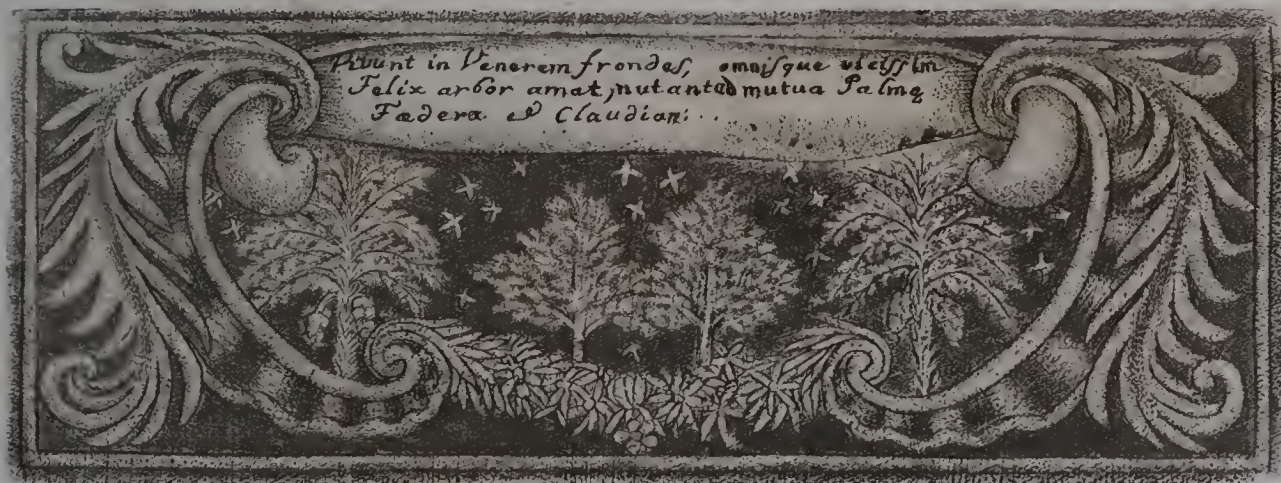 Vivunt in Venerem frondes, omnisque vicissim
Felix arbor amat, nutant ad mutua Palmę
Fœdera. & Claudian: . .